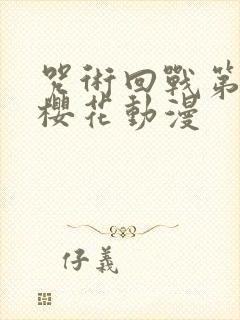 咒術回戰第
櫻花動漫
仔義